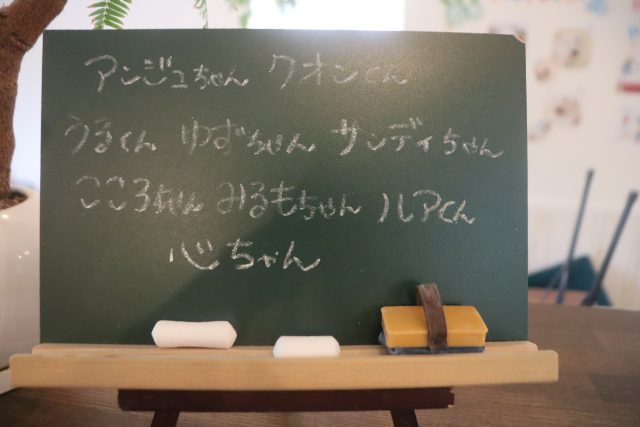 アンジュちゃん クオンくん
うるくん ゆずちゃん サンディちゃん
こころちゃん みるもちゃん ルアくん
心ちゃん